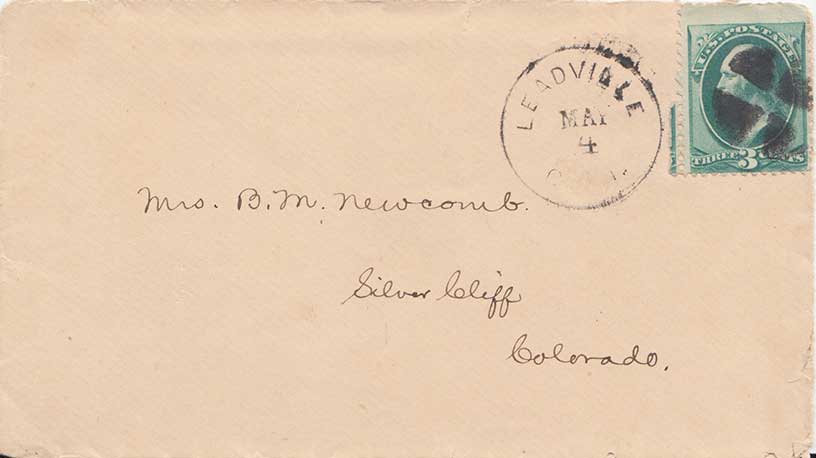 U.S. POSTAGE
LEADVILLE
MAY
4
THREE 3 CENTS
Mrs. B. M. Newcomb.
Silver Cliff
Colorado.